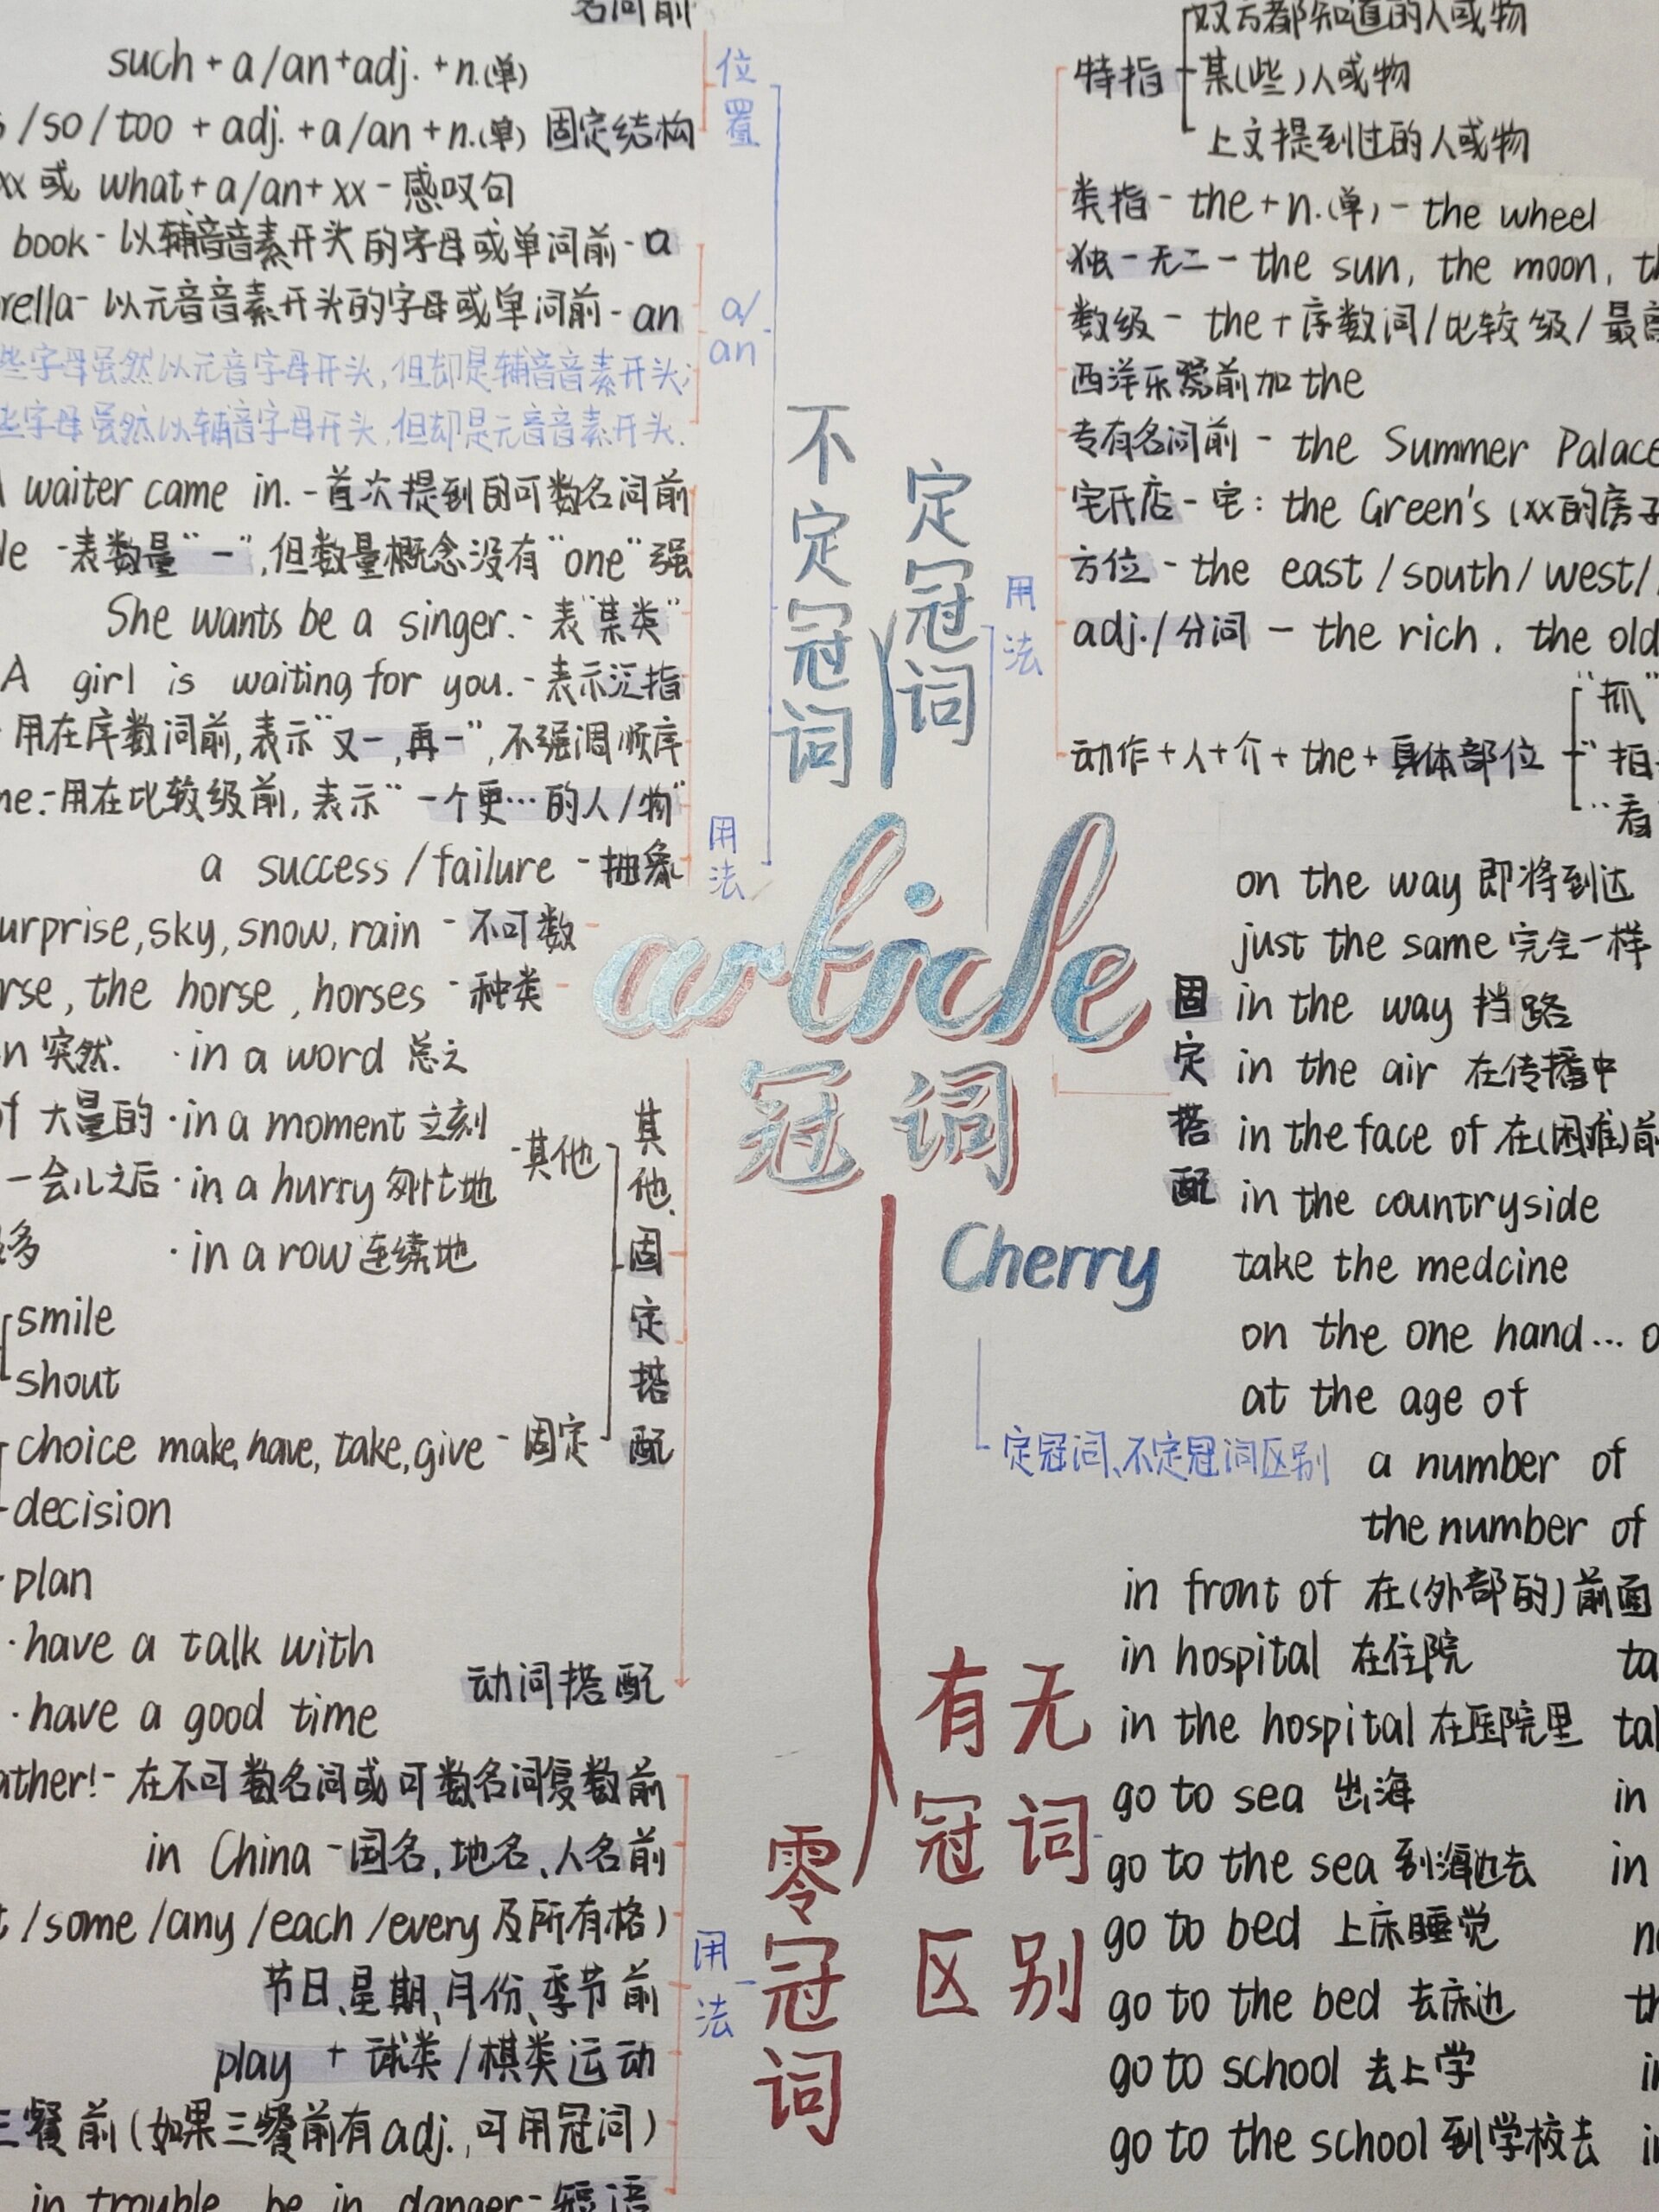 名词前
such + a/an+adj. + n.(单)
/so/too + adj. +a/an +n.(单) 固定结构
xx或 what+a/an+xx-感叹句
位置
book-以辅音音素开头的字母或单词前-a
rella-以元音音素开头的字母或单词前-an
a/an
些字母虽然以元音字母开头,但却是辅音音素开头;
些字母虽然以辅音字母开头,但却是元音音素开头.
waiter came in.-首次提到的可数名词前
le -表数量"一",但数量概念没有"one"强
She wants be a singer.-表"某类"
A girl is waiting for you.-表示泛指
用在序数词前,表示"又一,再一",不强调顺序
ne.-用在比较级前,表示"一个更…的人/物"
a success/failure -抽象
用法
urprise,sky,snow,rain -不可数
rse, the horse, horses -种类
n 突然. ·in a word 总之
of 大量的 ·in a moment 立刻
一会儿之后 ·in a hurry 匆忙地
多 ·in a row 连续地
-其他
smile
shout
choice make,have,take,give -固定
其他固定搭配
decision
plan
·have a talk with
·have a good time
动词搭配
ather!-在不可数名词或可数名词复数前
in China -国名,地名,人名前
/some/any/each/every及所有格)
节日、星期、月份、季节前
play + 球类/棋类运动
三餐前(如果三餐前有adj.,可用冠词)
in trouble, be in danger-短语
用法
不定冠词
定冠词
article
冠词
Cherry
零冠词
用法
特指
双方都知道的人或物
某(些)人或物
上文提到过的人或物
类指-the+n.(单)-the wheel
独一无二-the sun, the moon, th
数级-the+序数词/比较级/最高
西洋乐器前加the
专有名词前-the Summer Palace
宅氏店-宅:the Green's (xx的房子
方位-the east/south/west/
adj./分词-the rich, the old
动作+人+介+the+身体部位
"抓"
"拍
"看
固定搭配
on the way 即将到达
just the same 完全一样
in the way 挡路
in the air 在传播中
in the face of 在(困难)前
in the countryside
take the medcine
on the one hand... o
at the age of
定冠词、不定冠词区别
a number of
the number of
有无冠词区别
in front of 在(外部的)前面
in hospital 在住院 ta
in the hospital 在医院里 tak
go to sea 出海 in
go to the sea 到海边去 in
go to bed 上床睡觉 n
go to the bed 去床边 th
go to school 去上学 in
go to the school 到学校去 in